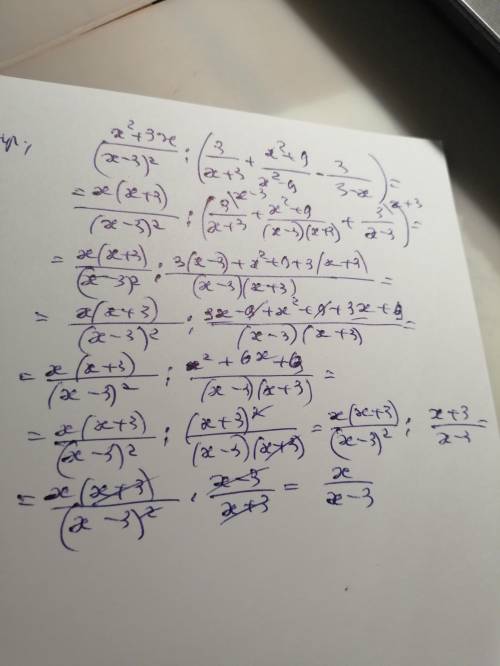 (x²+3x)/(x-3)² : (3/(x+3) + (x²+9)/(x²-9) - 3/(3-x)) =
= x(x+3)/(x-3)² : (3^(x-3)/(x+3) + (x²+9)/((x-3)(x+3)) + 3^(x+3)/(x-3)) =
= x(x+3)/(x-3)² : (3(x-3)+x²+9+3(x+3))/((x-3)(x+3)) =
= x(x+3)/(x-3)² : (3x-9+x²+9+3x+9)/((x-3)(x+3)) =
= x(x+3)/(x-3)² : (x²+6x+9)/((x-3)(x+3)) =
= x(x+3)/(x-3)² : (x+3)²/((x-3)(x+3)) = x(x+3)/(x-3)² : (x+3)/(x-3)
= x(x+3)/(x-3)² · (x-3)/(x+3) = x/(x-3)